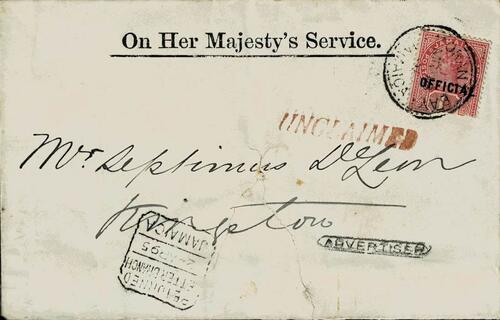 On Her Majesty's Service.
OFFICIAL
UNCLAIMED
Mr Septimus DeLeon
Kingston
ADVERTISED
RETURNED
LETTER BRANCH
JAMAICA